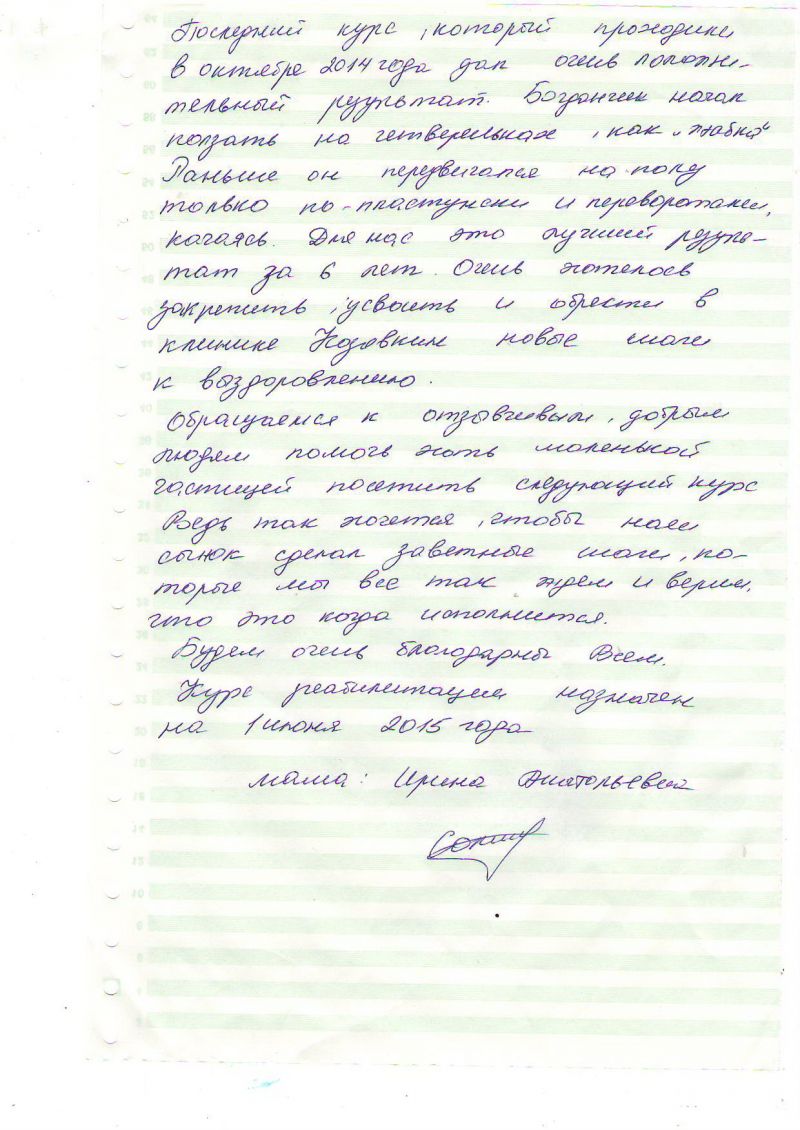 Последний курс, который проходили
в октябре 2014 года дал очень положи-
тельный результат. Богданчик начал
ползать на четвереньках, как "жабка"
Раньше он передвигался на полу
только по-пластунски и переворотами,
качаясь. Для нас это лучший резуль-
тат за 6 лет. Очень хотелось
закрепить, усвоить и обрести в
клинике Козявкин новые шаги
к выздоровлению.
Обращаемся к отзывчивым, добрым
людям помочь хоть маленькой
частицей посетить следующий курс
Ведь так хочется, чтобы наш
сынок сделал заветные шаги, ко-
торые мы все так ждем и верим,
что это когда исполнится.
Будем очень благодарны Всем.
Курс реабилитации назначен
на 1 июня 2015 года
мама: Ирина Анатольевна